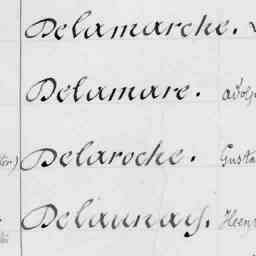 Delamarche.
Delamare. adolp
ter) Delaroche. Gusta
Delaunay. Henr